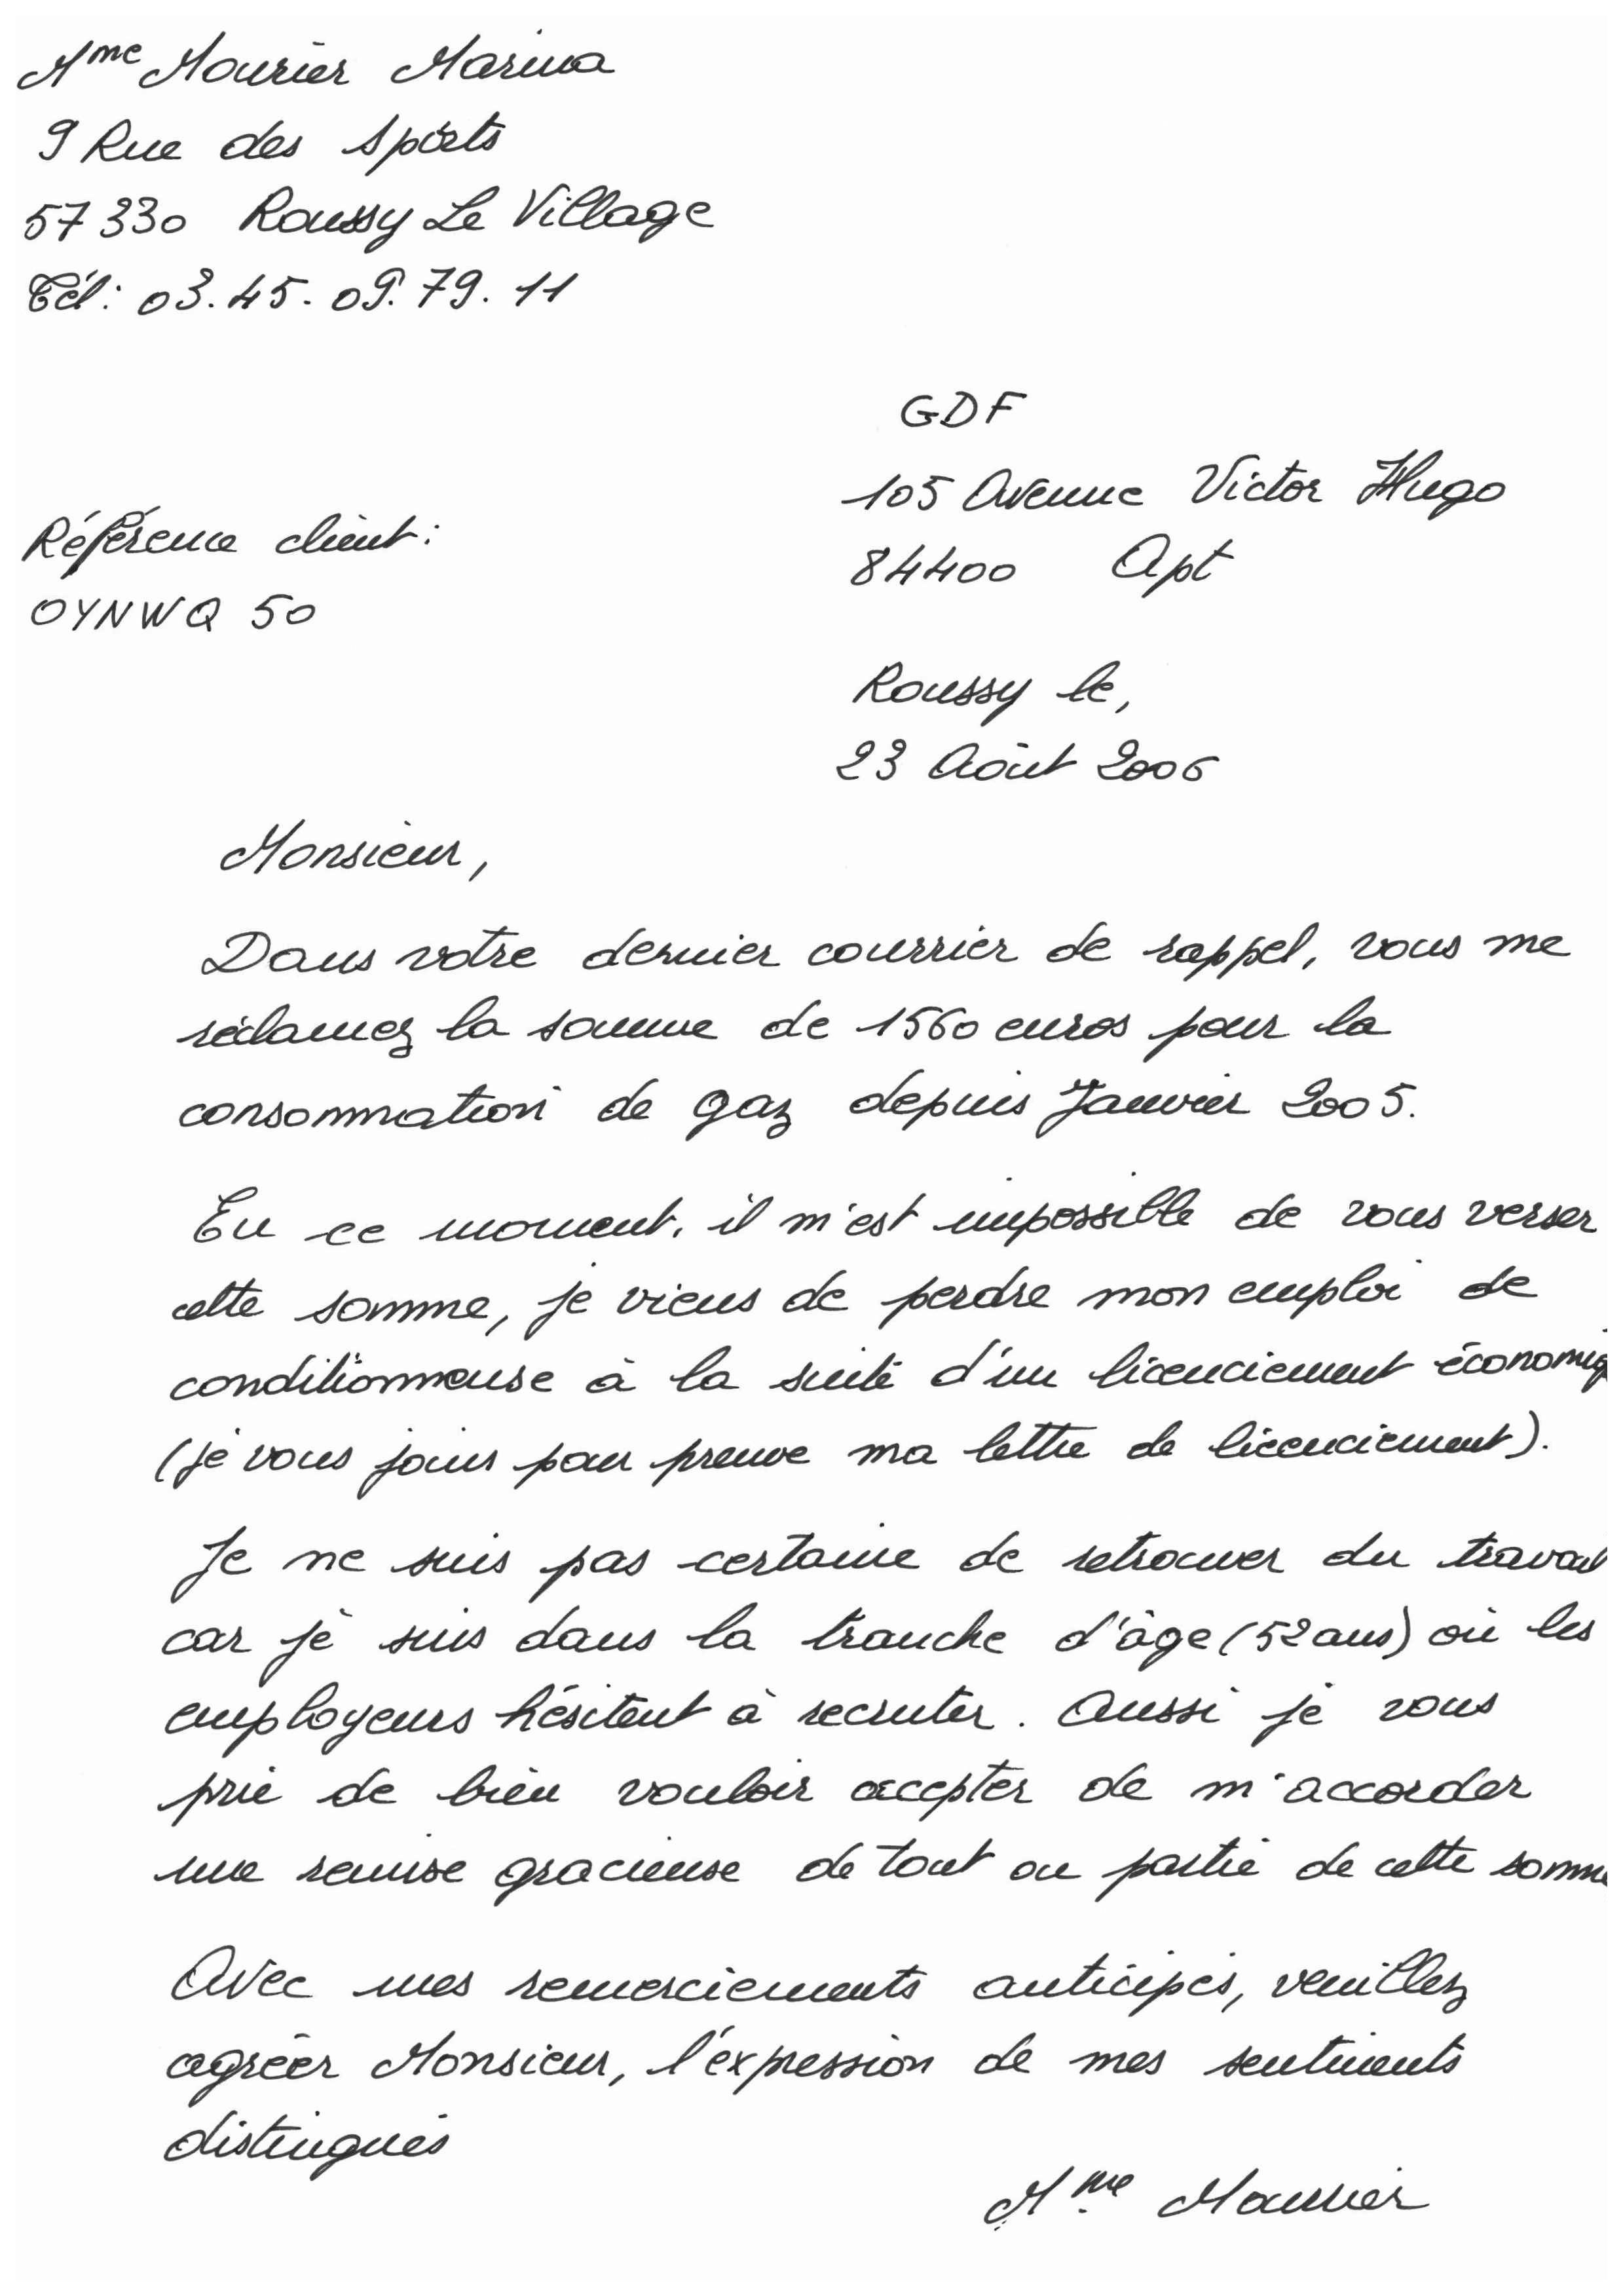 Mme Mourier Marina
9 Rue des Sports
57330 Roussy Le Village
Tél: 03.45.09.79.11
GDF
105 Avenue Victor Hugo
84400 Apt
Référence client:
OYNWQ 50
Roussy le,
23 Août 2006
Monsieur,
Dans votre dernier courrier de rappel, vous me
réclamez la somme de 1560 euros pour la
consommation de gaz depuis Janvier 2005.
En ce moment, il m'est impossible de vous verser
cette somme, je viens de perdre mon emploi de
conditionneuse à la suite d'un licenciement économiq
(je vous joins pour preuve ma lettre de licenciement).
Je ne suis pas certaine de retrouver du travail
car je suis dans la tranche d'âge (52 ans) où les
employeurs hésitent à recruter. Aussi je vous
prie de bien vouloir accepter de m'accorder
une remise gracieuse de tout ou partie de cette somme
Avec mes remerciements anticipés, veuillez
agréer Monsieur, l'expression de mes sentiments
distingués
Mme Mourier